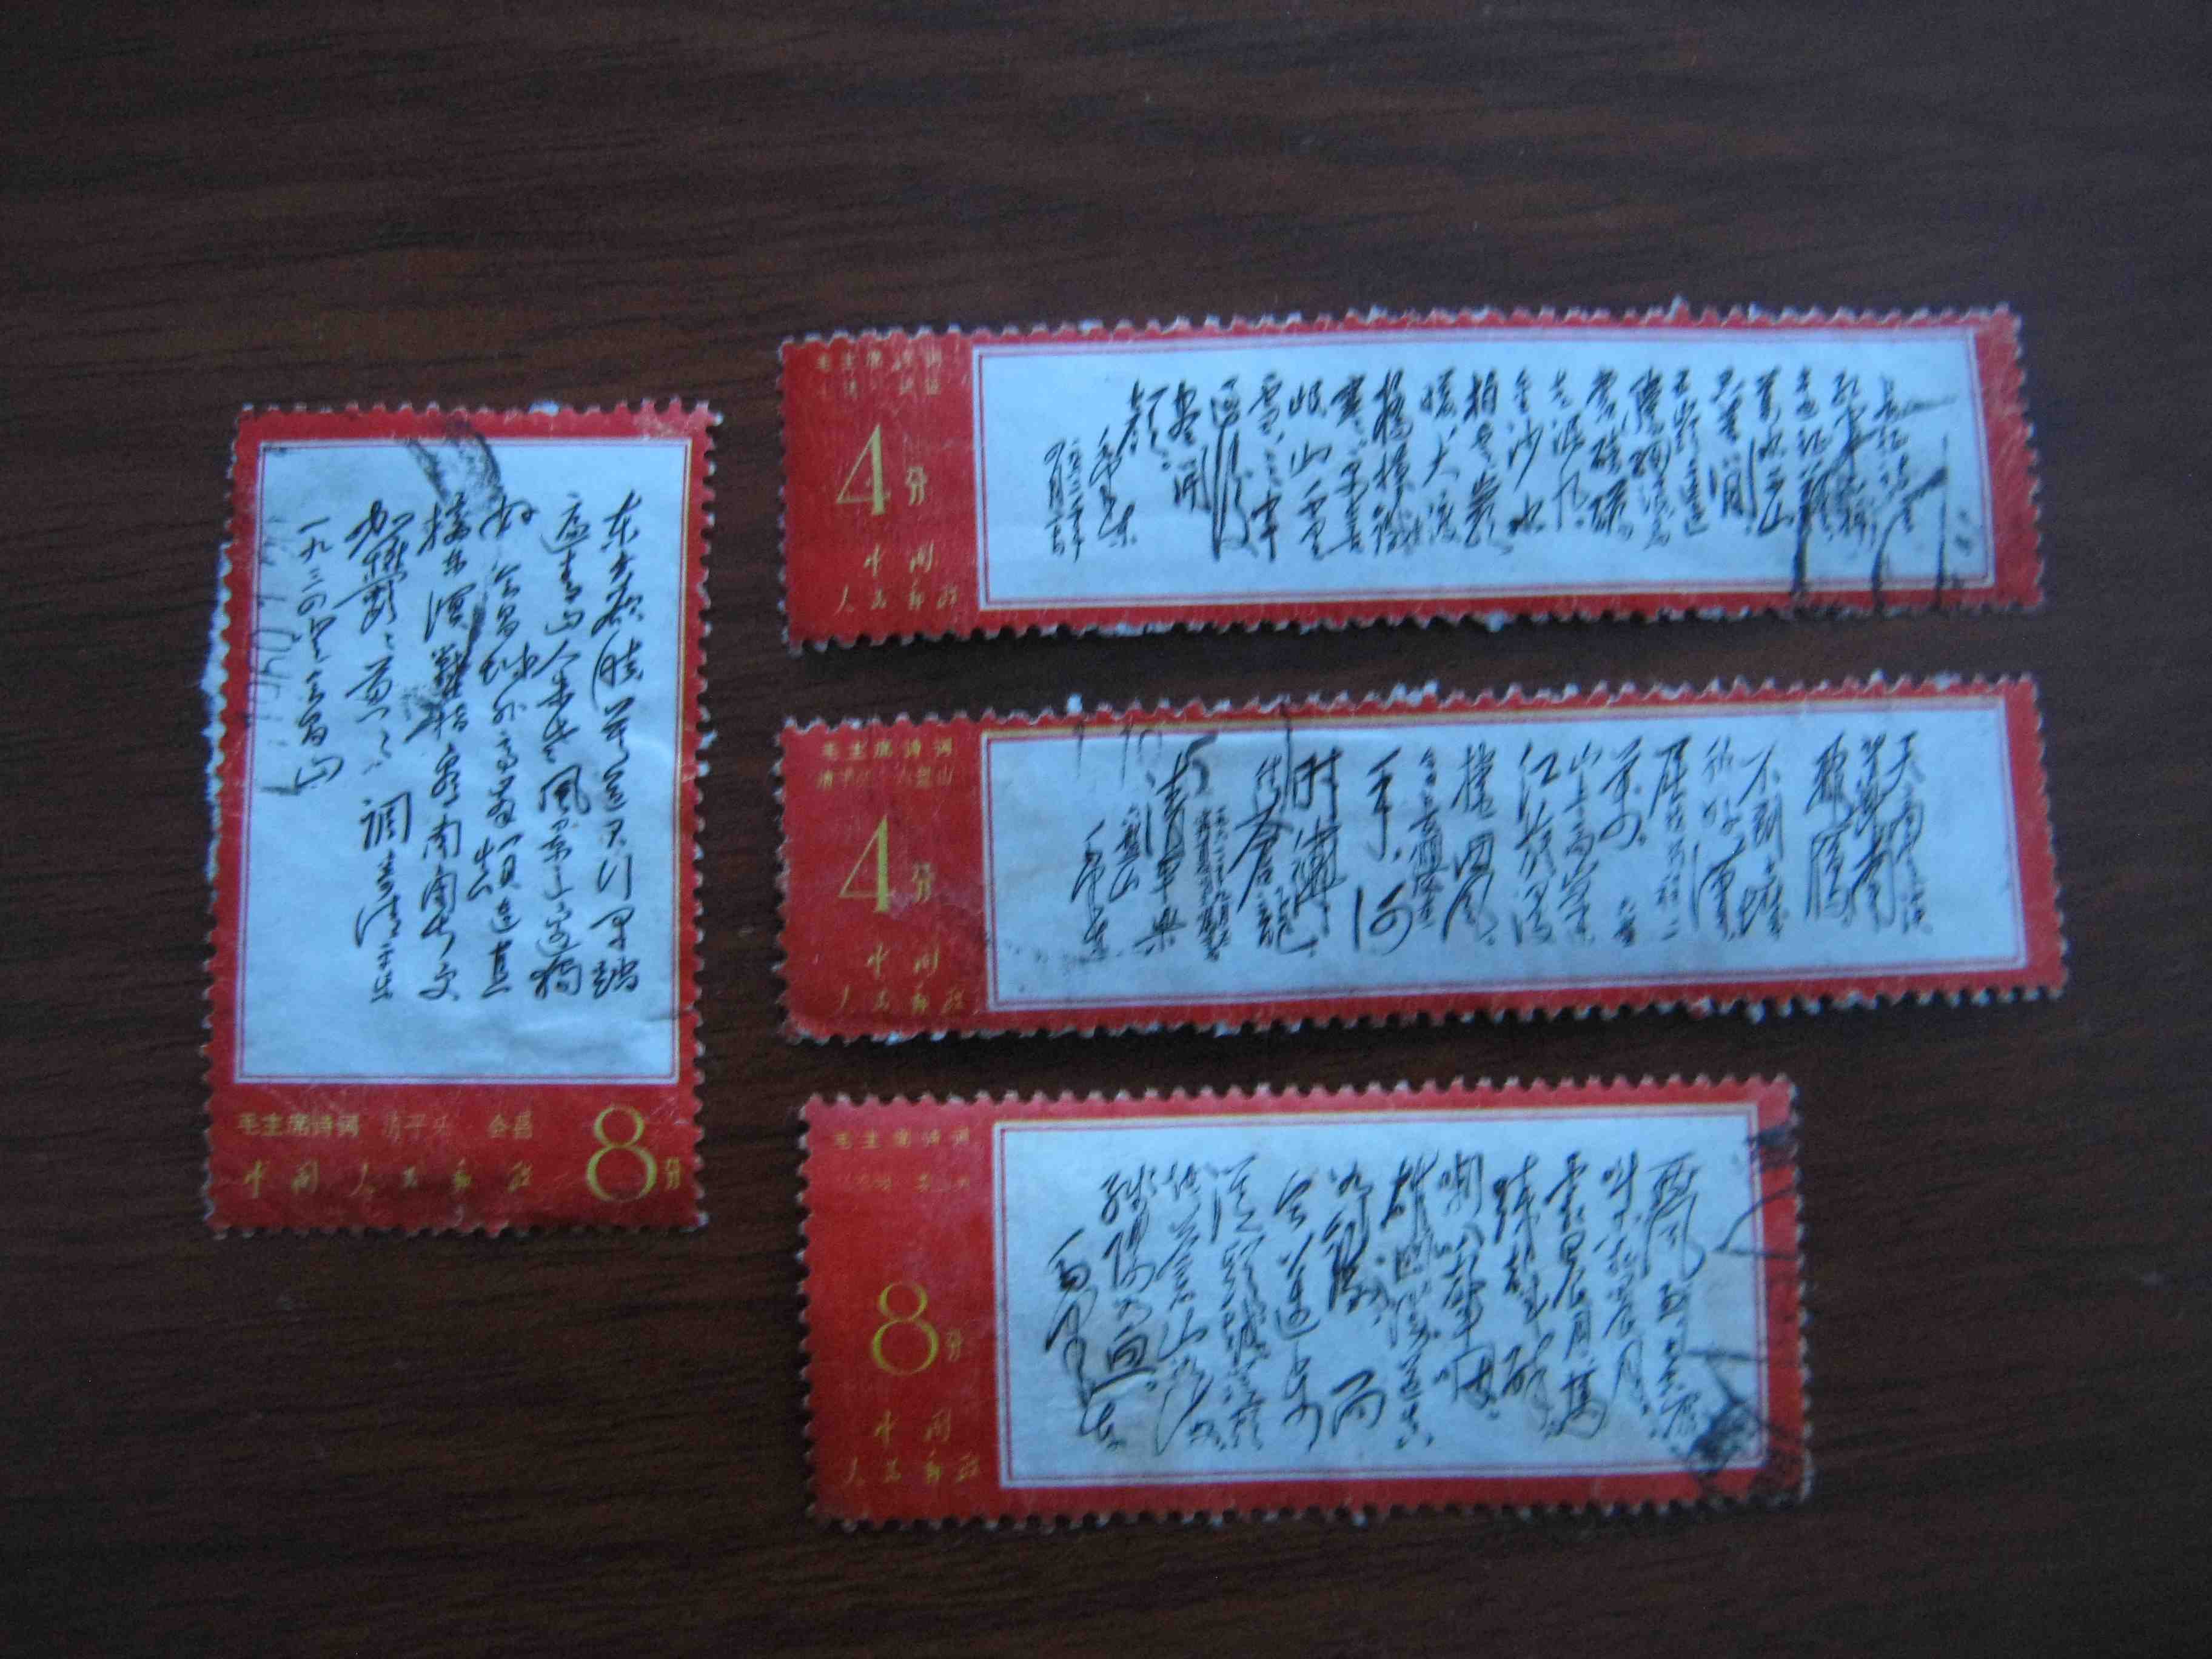 东方欲晓莫道君行早踏
遍青山人未老风景这边独
好会昌城外高峰颠连直
接东溟战士指看南粤更
加郁郁葱葱 调寄清平乐
一九三四年登会昌山
毛主席诗词 清平乐 会昌
8分
中国人民邮政
毛主席诗词
七律 长征
4分
中国
人民邮政
红军不怕
远征难
万水千山
只等闲
五岭逶迤
腾细浪乌
蒙磅礴
走泥丸
金沙水
拍云崖
暖大渡
桥横铁
索寒更喜
岷山千里
雪三军
过后
尽开
颜
毛泽东
毛主席诗词
清平乐 六盘山
4分
中国
人民邮政
天高云淡
望断南飞
雁
不到长城
非好汉
屈指行程二
万 六盘
山上高峰
红旗漫
卷西风
今日长缨在
手何
时缚
住苍龙
清平乐
六盘山
毛泽东
毛主席诗词
8分
中国
人民邮政
西风烈长空雁
叫霜晨月
霜晨月马
蹄声碎
喇叭声咽
雄关漫道真
如铁而
今迈步
从头越从
头越苍山如海
残阳如血
毛泽东